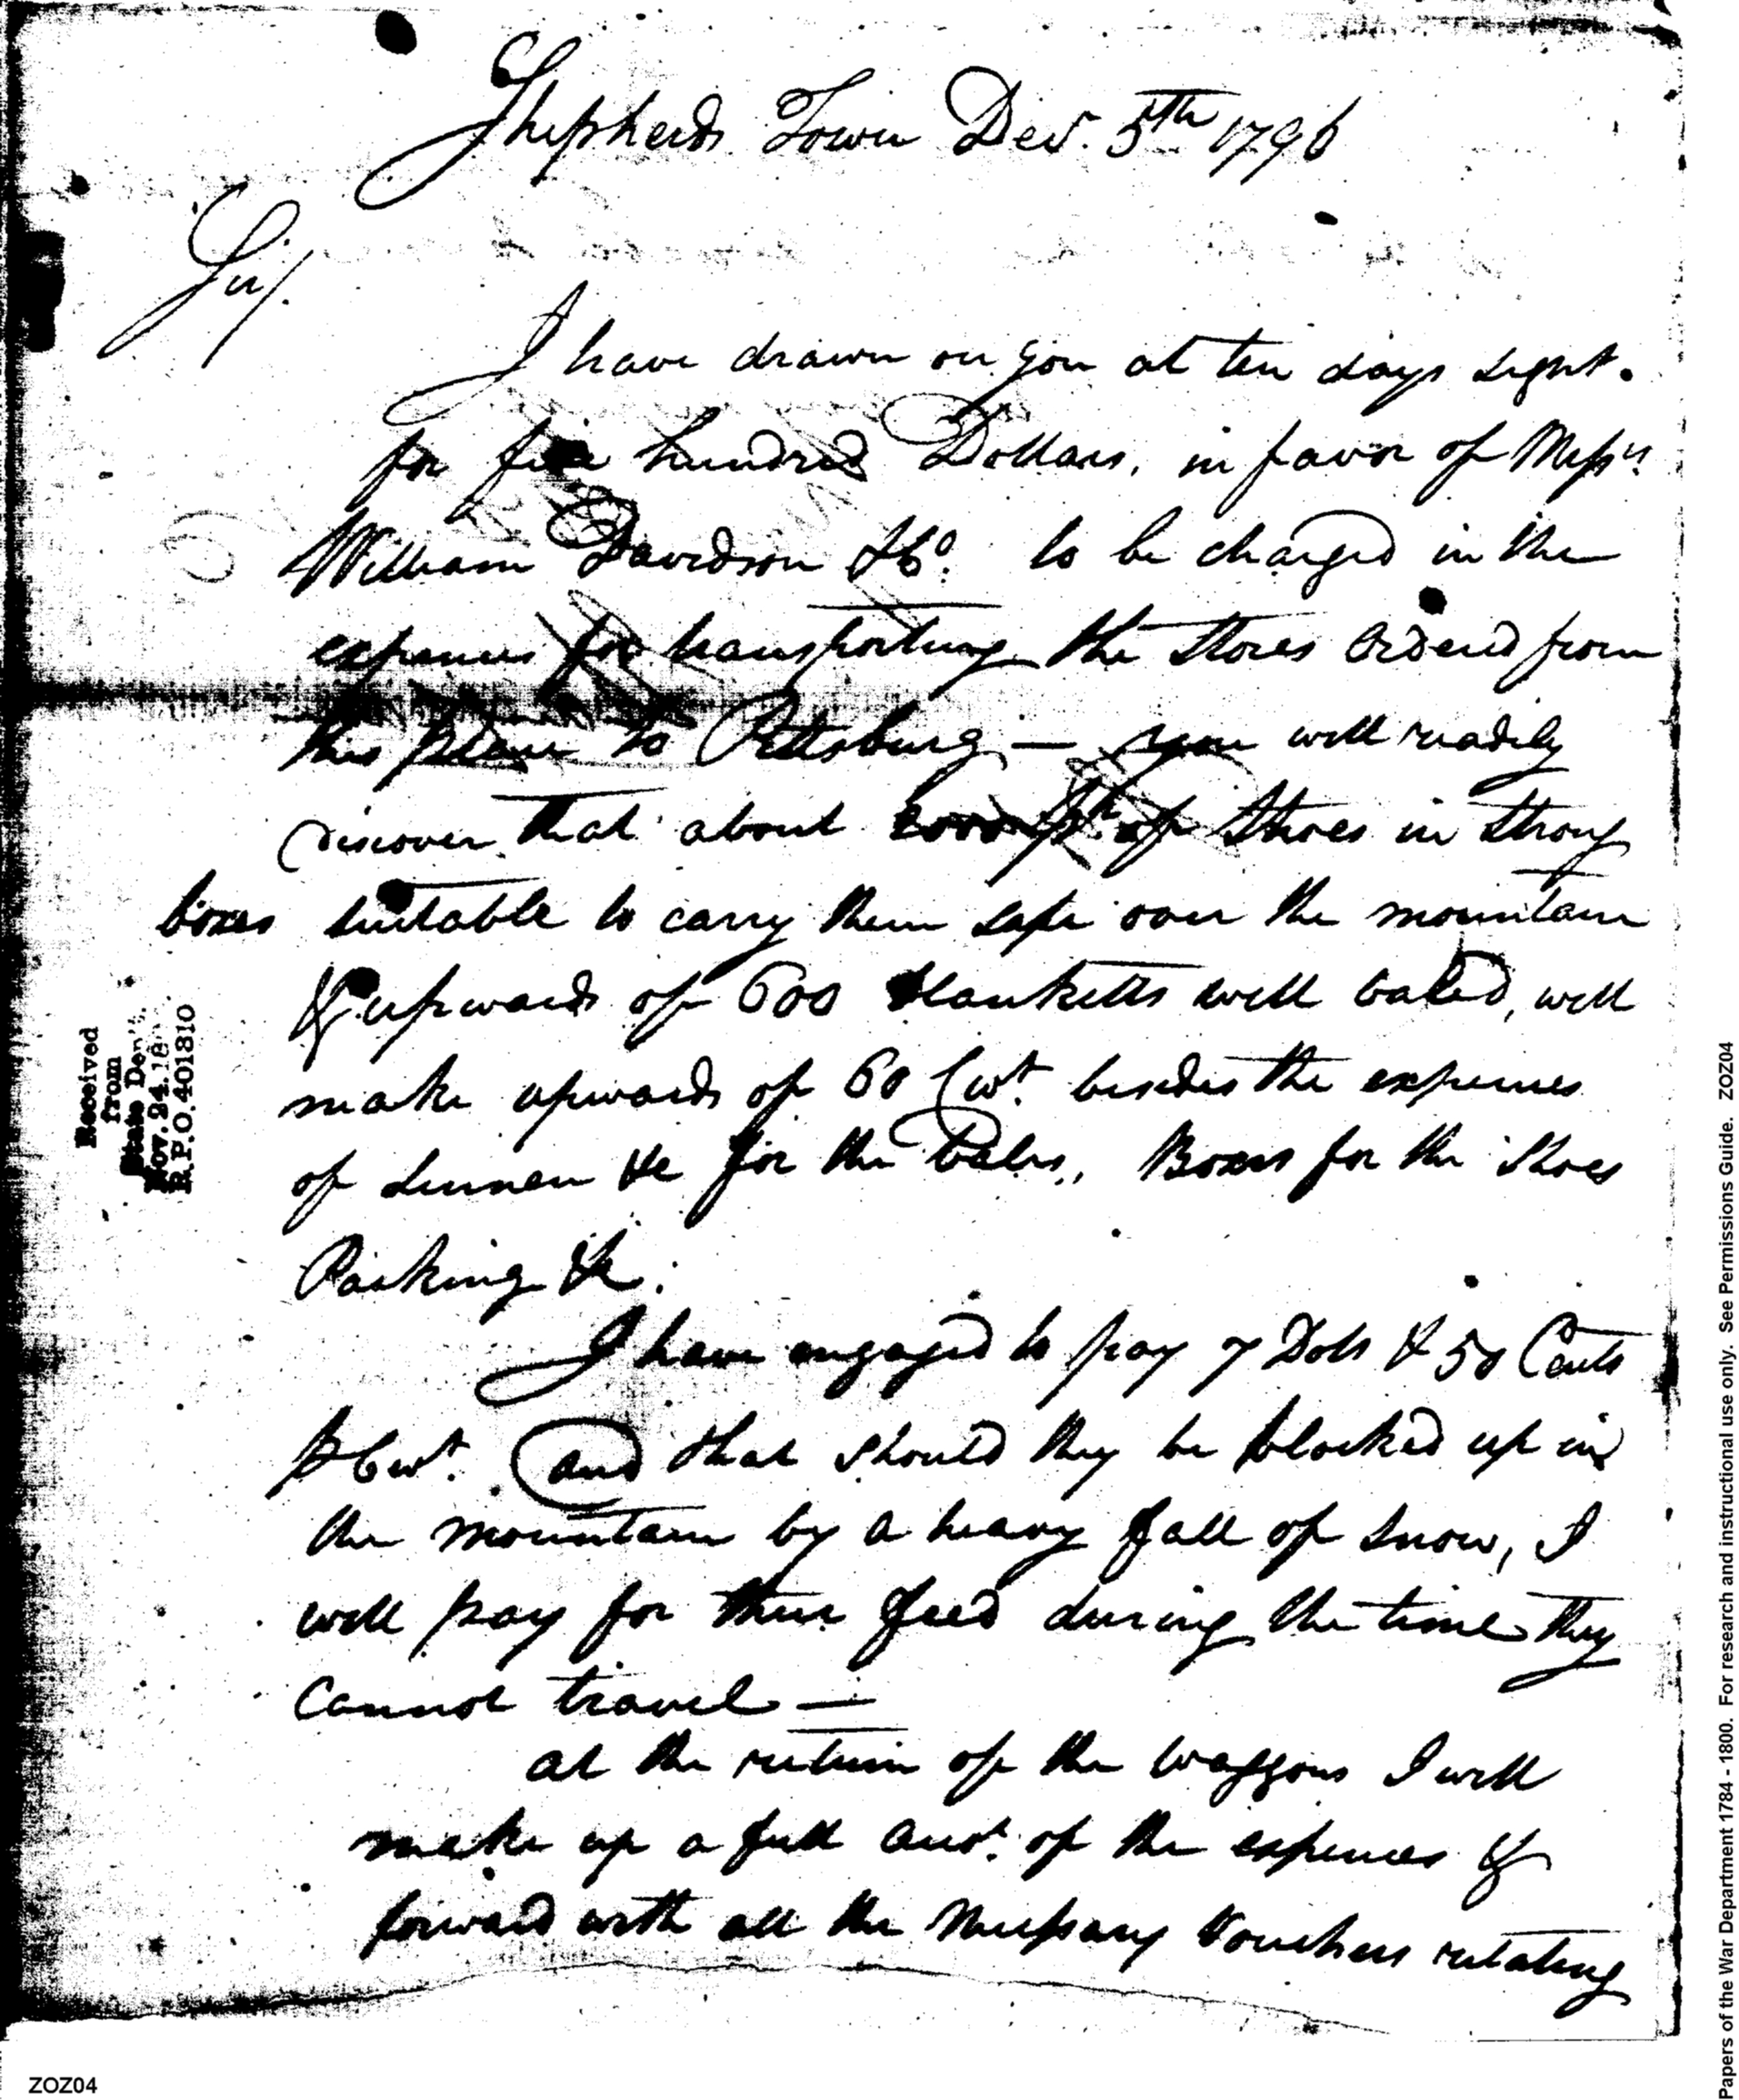 Shepherds Town Decr. 5th 1796
Sir/.
I have drawn on you at ten days sight.
for five hundred Dollars, in favor of Messrs.
William Davidson & Co. to be charged in the
expences for transporting the Stores Ordered from
this place to Pittsburg — you will readily
discover that about 2000 pr. of Shoes in strong
boxes suitable to carry them safe over the mountain
& upwards of 600 Blanketts well baled, will
make upwards of 60 Cwt. besides the expences
of Linnen &c for the bales, Boxes for the Shoes
Packing &c:
I have engaged to pay 7 Dols & 50 Cents
P Cwt. and that should they be blocked up in
the mountain by a heavy fall of snow, I
will pay for their feed during the time they
Cannot travel —
at the return of the waggons I will
make up a full Acct. of the expences &
forward with all the Necessary Vouchers relating
Received
from
State Dept.
Nov. 24. 18
R.P.O. 401810
Papers of the War Department 1784 - 1800. For research and instructional use only. See Permissions Guide. ZOZ04
ZOZ04